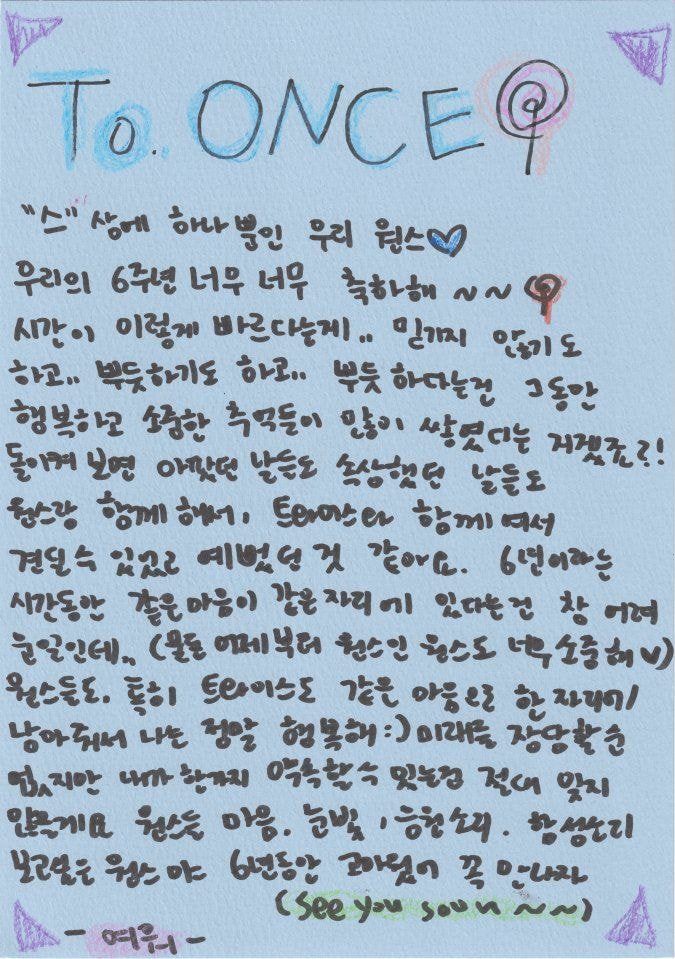 To. ONCE
"스"상에 하나뿐인 우리 원스♥
우리의 6주년 너무 너무 축하해 ~~
시간이 이렇게 빠르다는게.. 믿기지 않기도
하고.. 뿌듯하기도 하고.. 뿌듯하다는건 그동안
행복하고 소중한 추억들이 많이 쌓였다는 거겠죠?!
돌이켜 보면 아팠던 날들도 속상했던 날들도
원스랑 함께해서, 트와이스와 함께여서
견딜 수 있었고 예뻤던 것 같아요. 6년이라는
시간동안 같은 마음이 같은 자리에 있다는건 참 어려
운일인데.. (물론 어제부터 원스인 원스도 너무 소중해♥)
원스들도, 특히 트와이스도 같은 마음으로 한 자리에
남아줘서 나는 정말 행복해 :) 미래를 장담할 순
없지만 내가 한가지 약속할 수 있는건 절대 잊지
않을게요 원스들 마음, 눈빛, 응원소리, 함성소리
보고싶은 원스야 6년동안 고마웠어 꼭 만나자
(see you soon ~~)